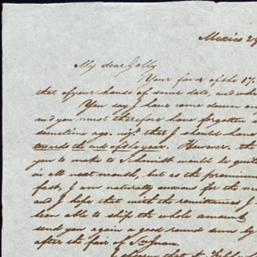 Mexico 29
My dear Golly
Your favor of the 17.
that of your hands of same date, and
You say I have come down
and you must therefore have forgotten
sometime ago, that I should have
towards the end of the year. However, the
you to make to Schmidt would be quite
in all next month, but as the premium
fast, I am naturally anxious for the
and I hope that with the remittances I
been able to ship the whole amount
send you again a good round sum by
after the fair of Sn Juan